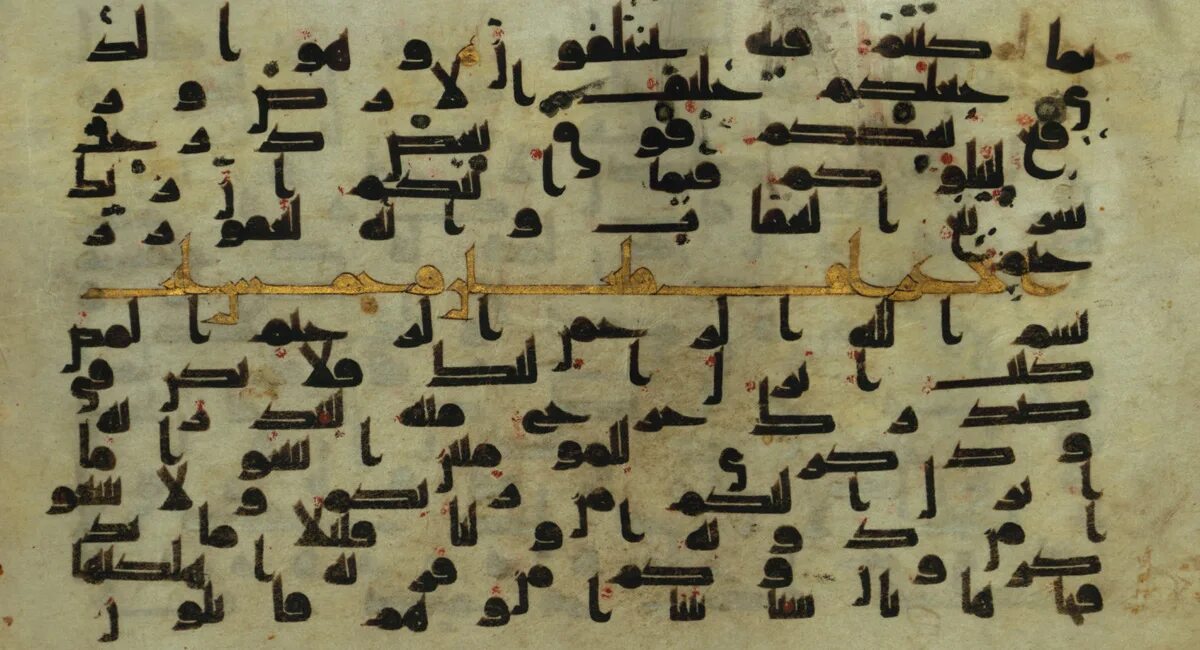 بما كنتم فيه تختلفون وهو الذ
ي جعلكم خلئف الارض ور
فع بعضكم فوق بعض درجت
ليبلوكم في ما اتيكم ان ربك
سريع العقاب وانه لغفور ر
حيم
بسم الله الرحمن الرحيم المص
كتب انزل اليك فلا يكن في
صدرك حرج منه لتنذر به
وذكرى للمومنين اتبعوا ما
انزل اليكم من ربكم ولا تتبعو
ا من دونه اوليا قليلا ما تذ
كرون وكم من قرية اهلكنها
فجاها باسنا بيتا او هم قايلون